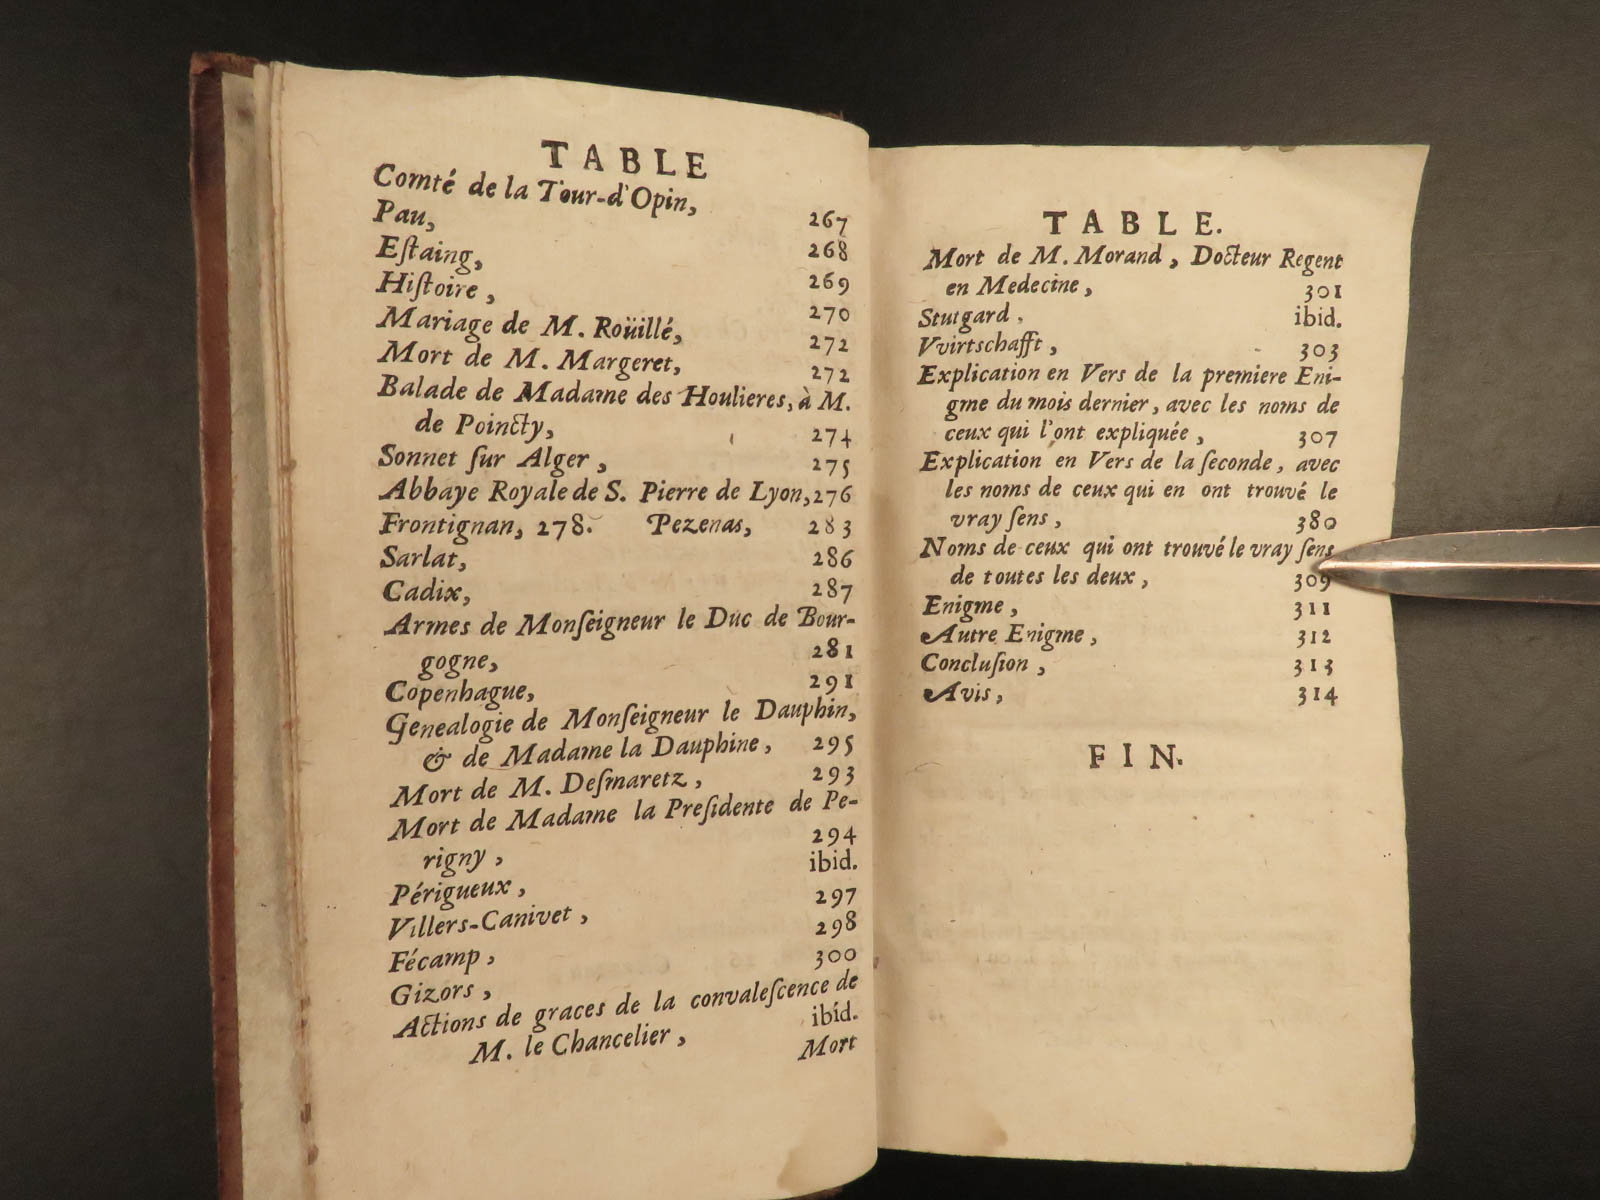 TABLE
Comté de la Tour-d'Opin, 267
Pau, 268
Eſtaing, 269
Hiſtoire, 270
Mariage de M. Roüillé, 272
Mort de M. Margeret, 272
Balade de Madame des Houlieres, à M.
de Poincty, 274
Sonnet ſur Alger, 275
Abbaye Royale de S. Pierre de Lyon, 276
Frontignan, 278. Pezenas, 283
Sarlat, 286
Cadix, 287
Armes de Monſeigneur le Duc de Bour-
gogne, 281
Copenhague, 291
Genealogie de Monſeigneur le Dauphin,
& de Madame la Dauphine, 295
Mort de M. Deſmaretz, 293
Mort de Madame la Preſidente de Pe-
rigny, 294
Périgueux, ibid.
Villers-Canivet, 297
Fécamp, 298
Gizors, 300
Actions de graces de la convaleſcence de
M. le Chancelier, ibid.
Mort
TABLE.
Mort de M. Morand, Docteur Regent
en Medecine, 301
Stutgard, ibid.
Vvirtschafft, 303
Explication en Vers de la premiere Eni-
gme du mois dernier, avec les noms de
ceux qui l'ont expliquée, 307
Explication en Vers de la ſeconde, avec
les noms de ceux qui en ont trouvé le
vray ſens, 380
Noms de ceux qui ont trouvé le vray ſens
de toutes les deux, 309
Enigme, 311
Autre Enigme, 312
Concluſion, 313
Avis, 314
FIN.